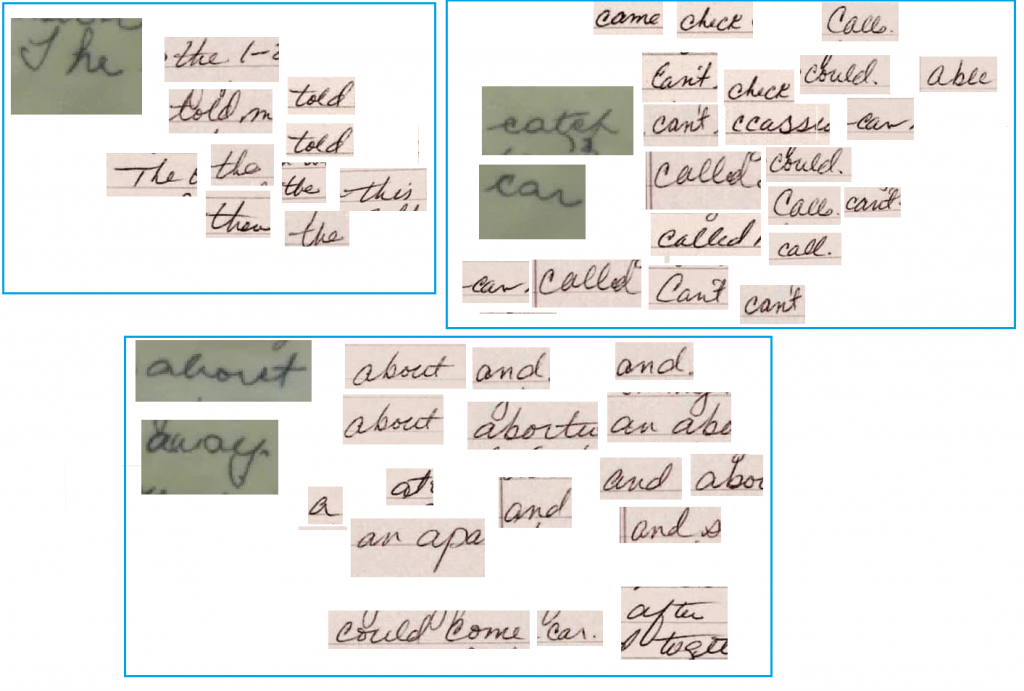 The
the 1-2
told m
told
told
The
the
the
this
then
the
came check Call.
Can't check could. able
catch can't car,
car called could.
Call. can't
called, call.
car, called Can't can't
about about and. and.
about abortu an abo
away.
a at and and abou
an apa and s
could come car. after
togeth